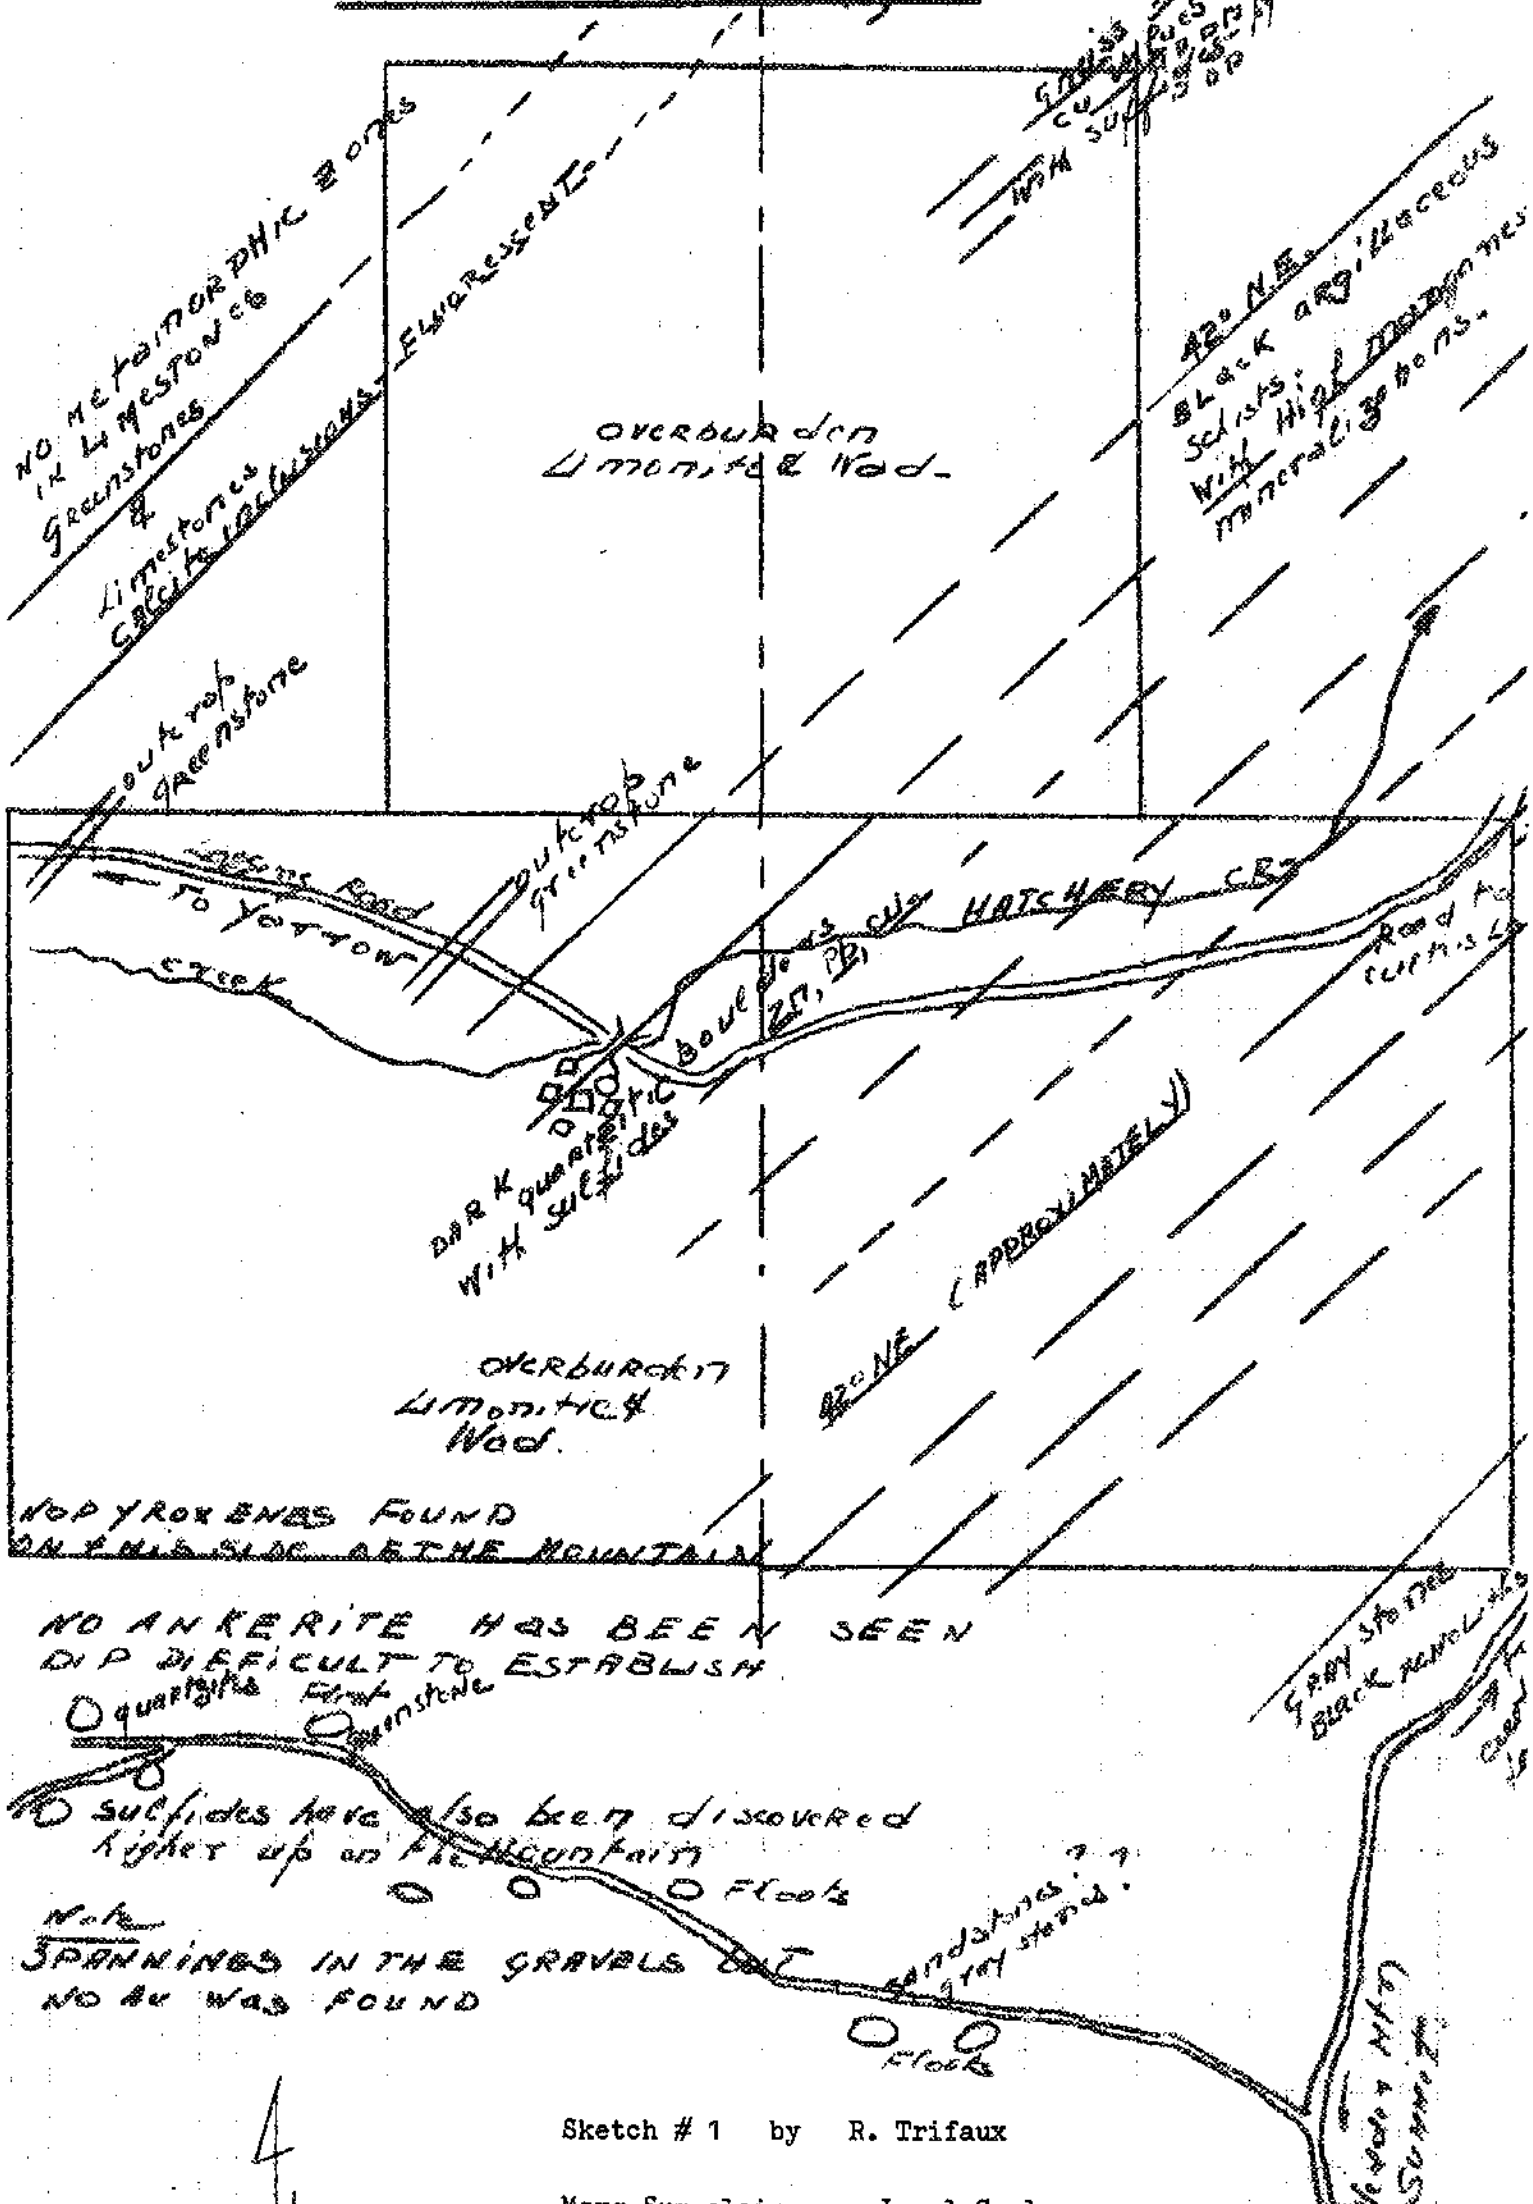 NO METAMORPHIC ZONES
IN LIMESTONES
Greenstones
&
Limestones
Calcite inclusions - FLUORESSENT
With
42° N.E.
BLACK argillaceous
Schists:
With High
mineralizations.
OVERburden
Limonite & Wad-
outcrop
greenstone
outcrop
greenstone
Road
TO YARROW
creek
HATCHERY CR
Road to
Boulders
Zn, Pb, Cu
DARK quartzitic
with sulfides
42° NE (APPROXIMATELY)
OVERBURden
Limonitic &
Wad.
NO PYROXENES FOUND
ON THIS SIDE OF THE MOUNTAIN
NO ANKERITE HAS BEEN SEEN
DIP DIFFICULT TO ESTABLISH
quartzites Float
greenstone
GRAY stones
sulfides have also been discovered
higher up on the Mountain
Floats
Note
3 PANNINGS IN THE GRAVELS BUT
NO Au WAS FOUND
sandstones? ?
gray stones?
Floats
Sketch # 1 by R. Trifaux